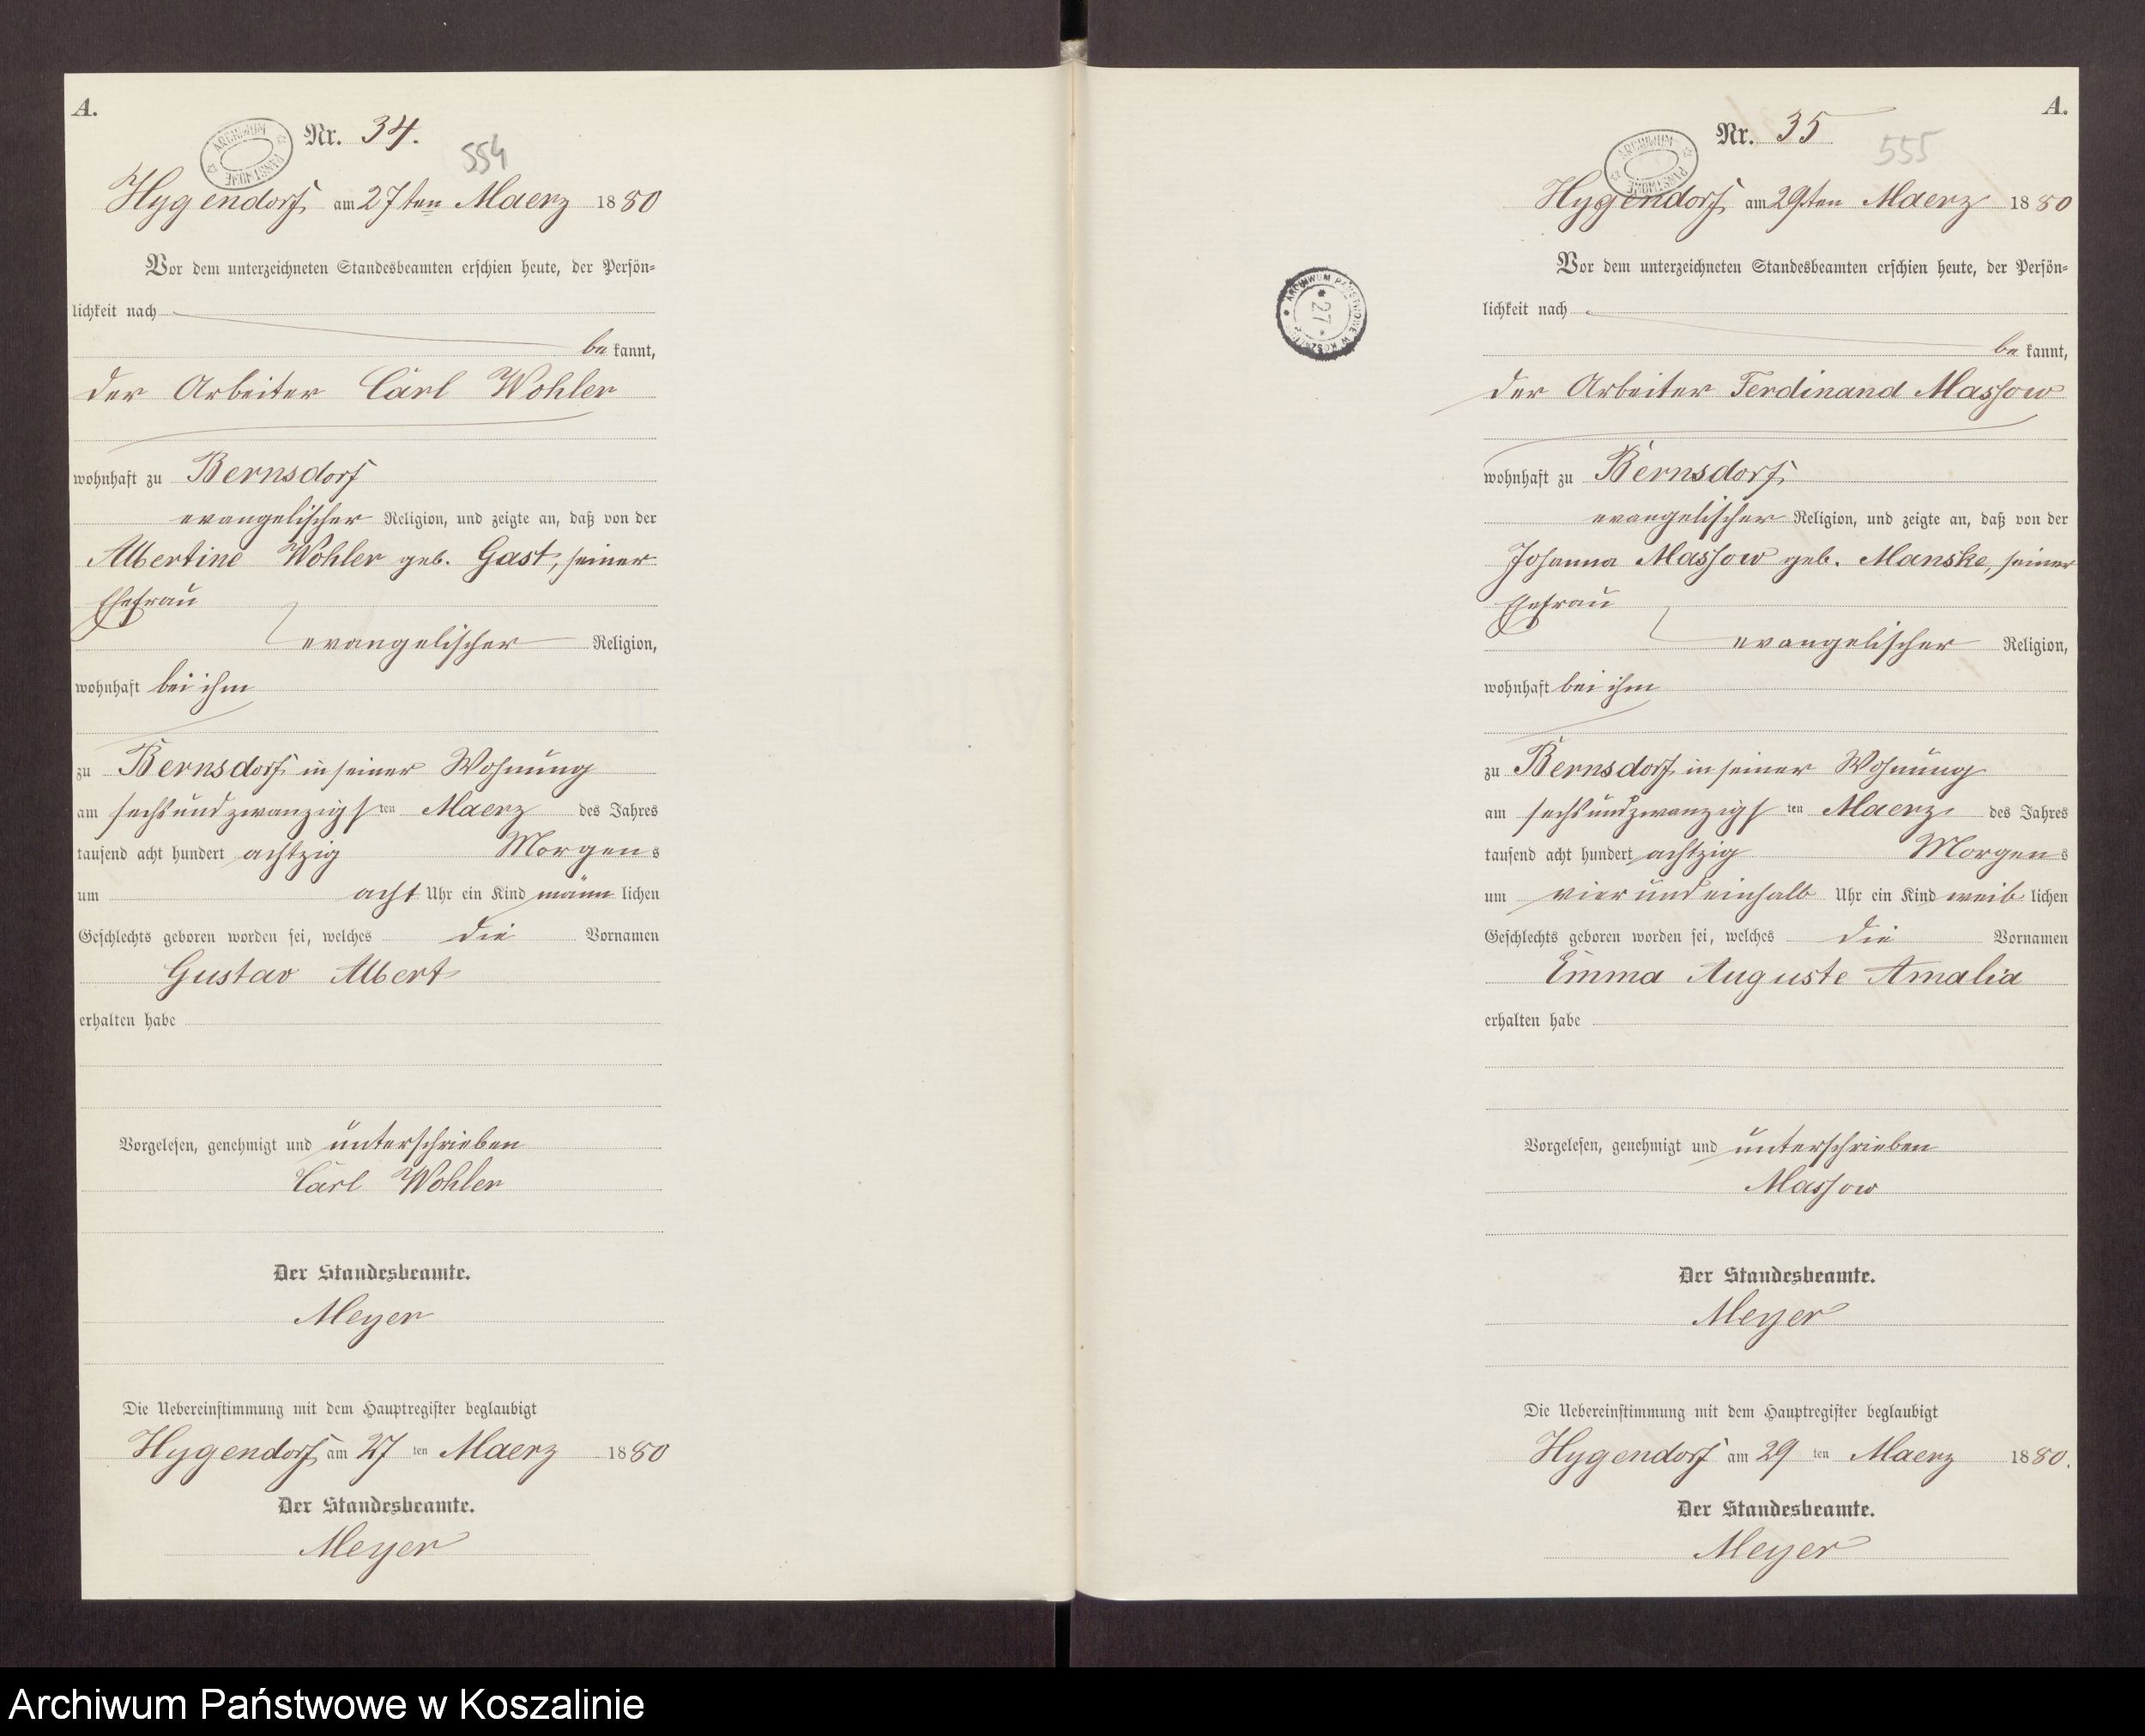 A.
Nr. 34.
554
Hygendorf am 27ten Maerz 1880
Vor dem unterzeichneten Standesbeamten erschien heute, der Persön=
lichkeit nach
bekannt,
der Arbeiter Carl Wohler
wohnhaft zu Bernsdorf
evangelischer Religion, und zeigte an, daß von der
Albertine Wohler geb. Gast, seiner
Ehefrau
evangelischer Religion,
wohnhaft bei ihm
zu Bernsdorf in seiner Wohnung
am sechsundzwanzigsten Maerz des Jahres
tausend acht hundert achtzig Morgens
um acht Uhr ein Kind männlichen
Geschlechts geboren worden sei, welches die Vornamen
Gustav Albert
erhalten habe
Vorgelesen, genehmigt und unterschrieben
Carl Wohler
Der Standesbeamte.
Meyer
Die Uebereinstimmung mit dem Hauptregister beglaubigt
Hygendorf am 27ten Maerz 1880
Der Standesbeamte.
Meyer
ARCHIWUM PAŃSTWOWE
ARCHIWUM PAŃSTWOWE W KOSZALINIE
27
A.
Nr. 35
555
ARCHIWUM PAŃSTWOWE
Hygendorf am 29ten Maerz 1880
Vor dem unterzeichneten Standesbeamten erschien heute, der Persön=
lichkeit nach
bekannt,
der Arbeiter Ferdinand Massow
wohnhaft zu Bernsdorf
evangelischer Religion, und zeigte an, daß von der
Johanna Massow geb. Manske, seiner
Ehefrau
evangelischer Religion,
wohnhaft bei ihm
zu Bernsdorf in seiner Wohnung
am sechsundzwanzigsten Maerz des Jahres
tausend acht hundert achtzig Morgens
um vier und einhalb Uhr ein Kind weiblichen
Geschlechts geboren worden sei, welches die Vornamen
Emma Auguste Amalia
erhalten habe
Vorgelesen, genehmigt und unterschrieben
Massow
Der Standesbeamte.
Meyer
Die Uebereinstimmung mit dem Hauptregister beglaubigt
Hygendorf am 29ten Maerz 1880.
Der Standesbeamte.
Meyer
Archiwum Państwowe w Koszalinie